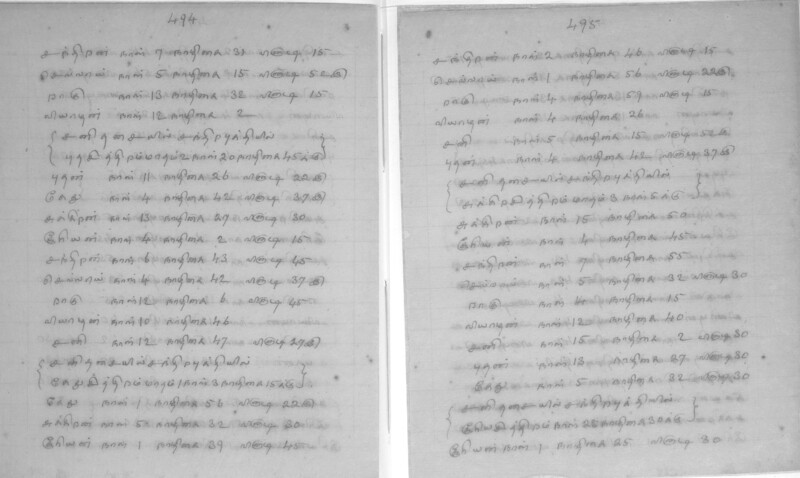 494
சந்திரன் நாள் 7 நாழிகை 31 விநாடி 15
செவ்வாய் நாள் 5 நாழிகை 15 விநாடி 52½
ராகு நாள் 13 நாழிகை 32 விநாடி 15
வியாழன் நாள் 12 நாழிகை 2
சனி தசையில் சந்திரபுத்தியில்
நாள் 20 நாழிகை 45க்கு
புதன் நாள் 11 நாழிகை 26 விநாடி 22½
கேது நாள் 4 நாழிகை 42 விநாடி 37½
சுக்கிரன் நாள் 13 நாழிகை 27 விநாடி 30
சூரியன் நாள் 4 நாழிகை 2 விநாடி 15
சந்திரன் நாள் 6 நாழிகை 43 விநாடி 45
செவ்வாய் நாள் 4 நாழிகை 42 விநாடி 37½
ராகு நாள் 12 நாழிகை 6 விநாடி 45
வியாழன் நாள் 10 நாழிகை 46
சனி நாள் 12 நாழிகை 47 விநாடி 7½
சனி தசையில் சந்திரபுத்தியில்
கேது நாள் 3 நாழிகை 15க்கு
கேது நாள் 1 நாழிகை 56 விநாடி 22½
சுக்கிரன் நாள் 5 நாழிகை 32 விநாடி 30
சூரியன் நாள் 1 நாழிகை 39 விநாடி 45
495
சந்திரன் நாள் 2 நாழிகை 46 விநாடி 15
செவ்வாய் நாள் 1 நாழிகை 56 விநாடி 22½
ராகு நாள் 4 நாழிகை 59 விநாடி 15
வியாழன் நாள் 4 நாழிகை 26
சனி நாள் 5 நாழிகை 15 விநாடி 52½
புதன் நாள் 4 நாழிகை 42 விநாடி 37½
சனி தசையில் சந்திரபுத்தியில்
நாள் 5க்கு
சுக்கிரன் நாள் 15 நாழிகை 50
சூரியன் நாள் 4 நாழிகை 45
சந்திரன் நாள் 7 நாழிகை 55
செவ்வாய் நாள் 5 நாழிகை 32 விநாடி 30
ராகு நாள் 14 நாழிகை 15
வியாழன் நாள் 12 நாழிகை 40
சனி நாள் 15 நாழிகை 2 விநாடி 30
புதன் நாள் 13 நாழிகை 27 விநாடி 30
கேது நாள் 5 நாழிகை 32 விநாடி 30
சனி தசையில் சந்திரபுத்தியில்
நாள் 28 நாழிகை 30க்கு
சூரியன் நாள் 1 நாழிகை 25 விநாடி 30